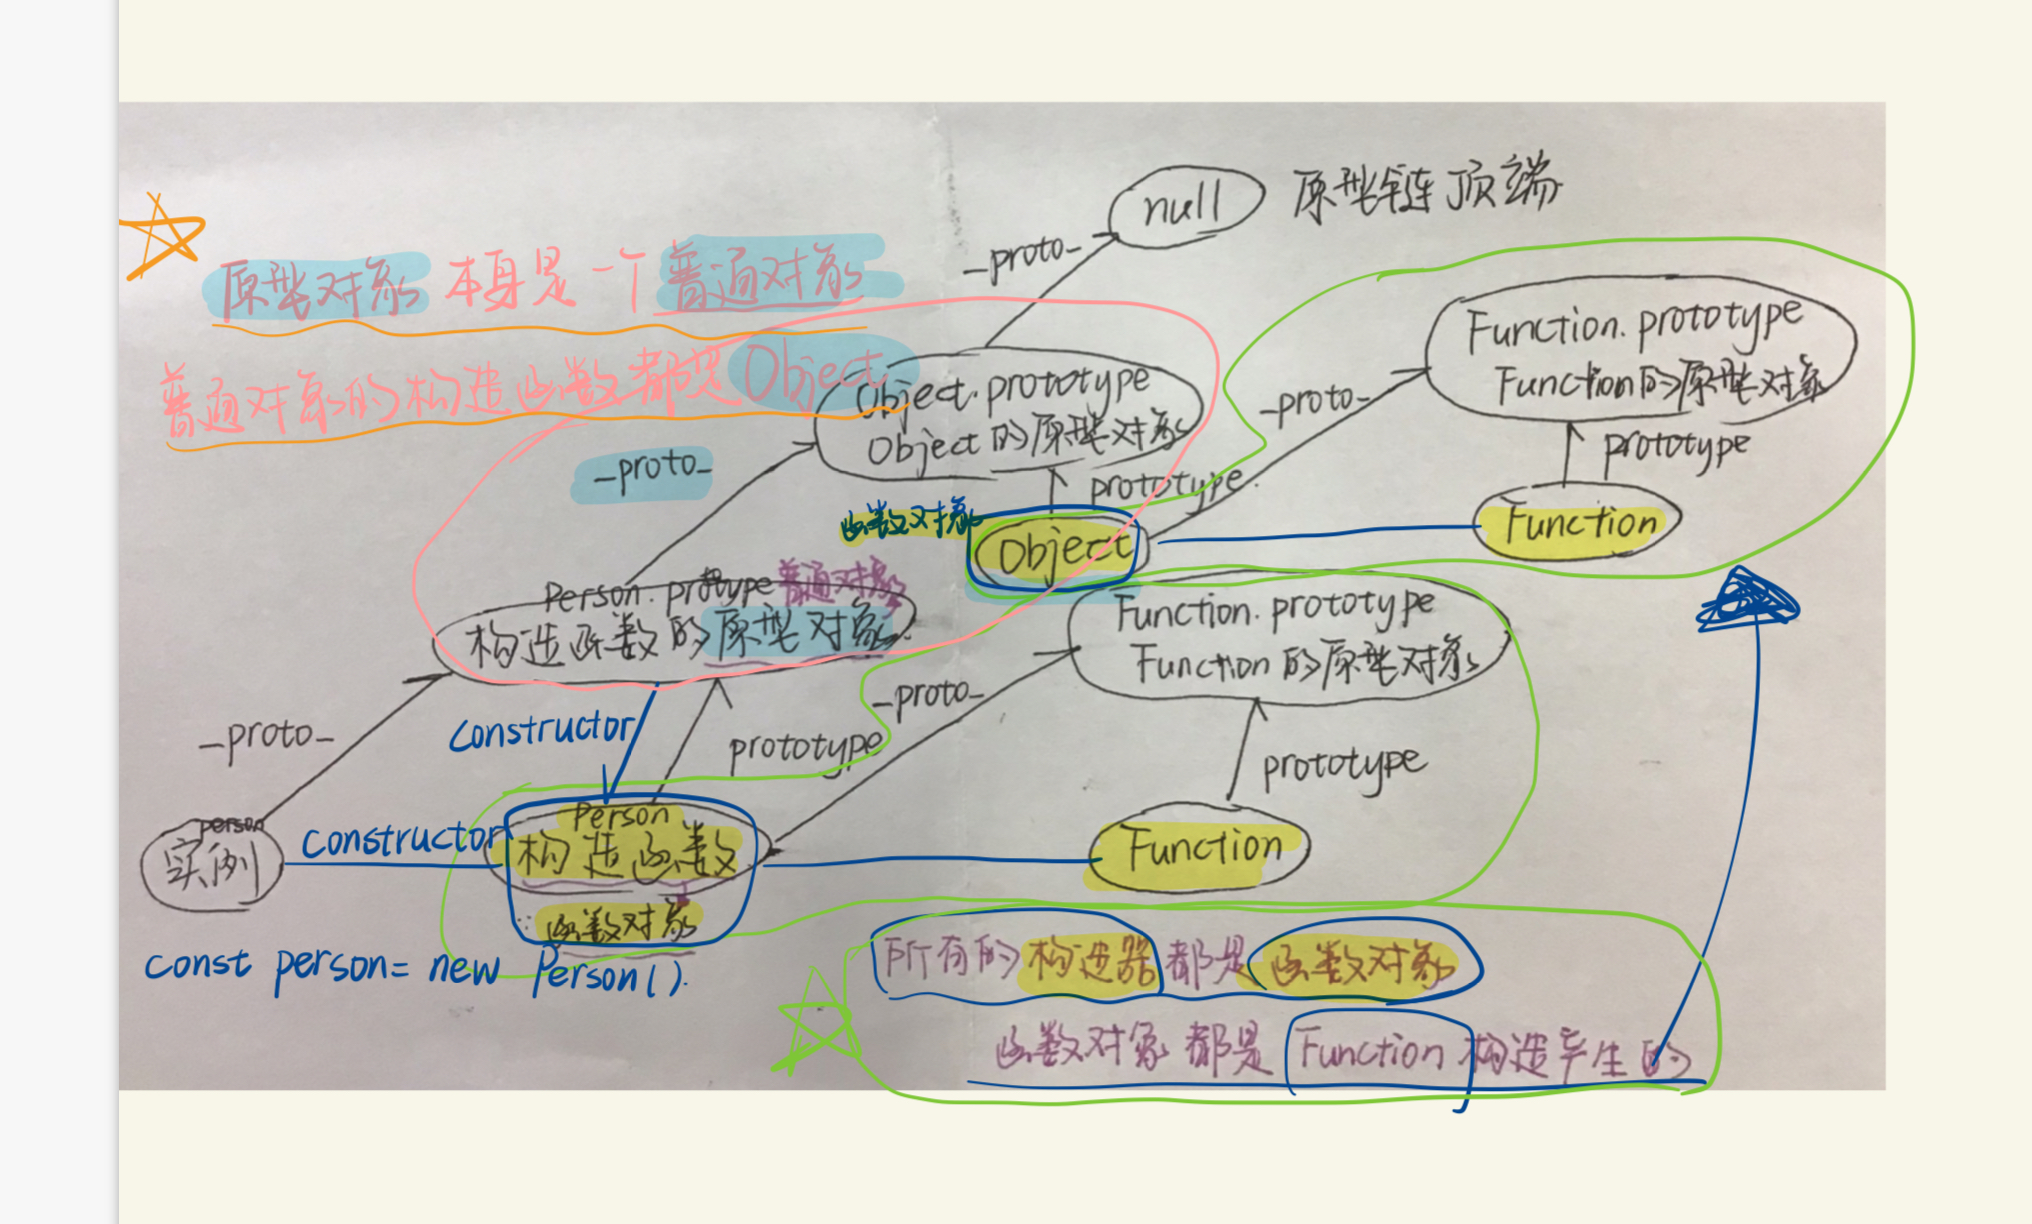 null
原型链顶端
_proto_
原型对象本身是一个普通对象
普通对象的构造函数都是Object
Object.prototype
Object的原型对象
Function.prototype
Function的原型对象
_proto_
prototype
_proto_
prototype.
函数对象
Object
Function
Person.prototype 普通对象
构造函数的原型对象
Function.prototype
Function的原型对象
_proto_
_proto_
constructor
prototype
prototype
person
实例
constructor
Person
构造函数
函数对象
Function
const person= new Person().
所有的构造器都是函数对象
函数对象都是Function构造产生的